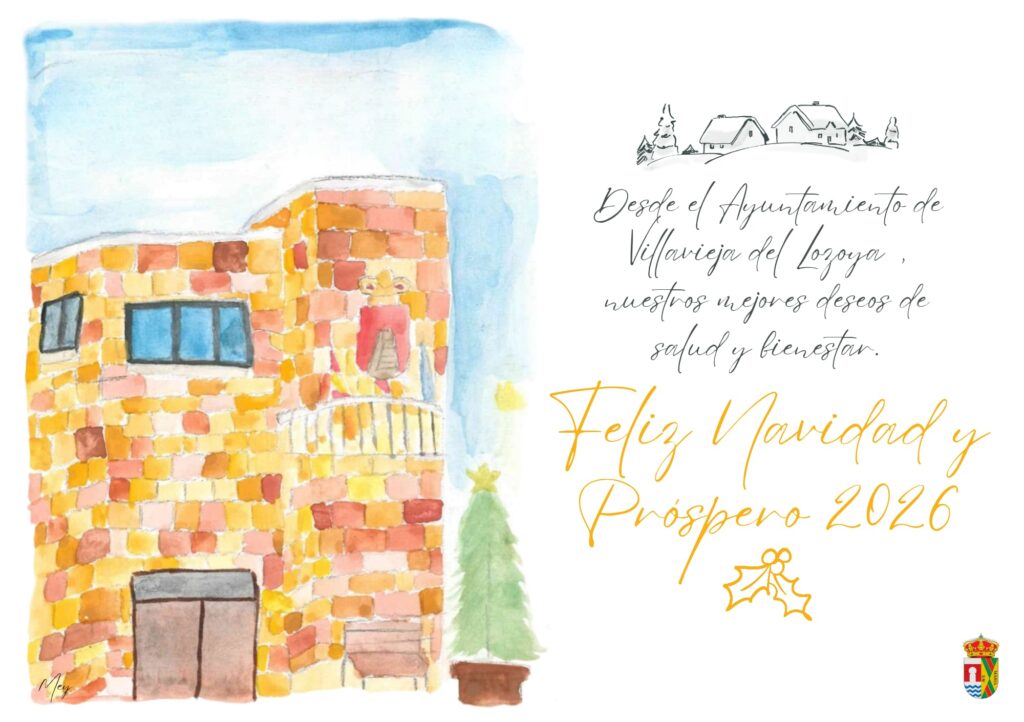 Desde el Ayuntamiento de
Villavieja del Lozoya ,
nuestros mejores deseos de
salud y bienestar.
Feliz Navidad y
Próspero 2026
Mey